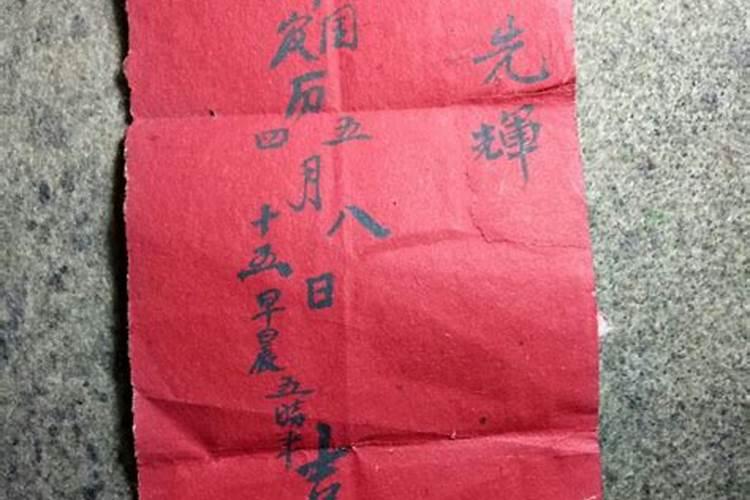 先輝
国 五 八
历 月 日 吉
农 四 十五 早晨五時半